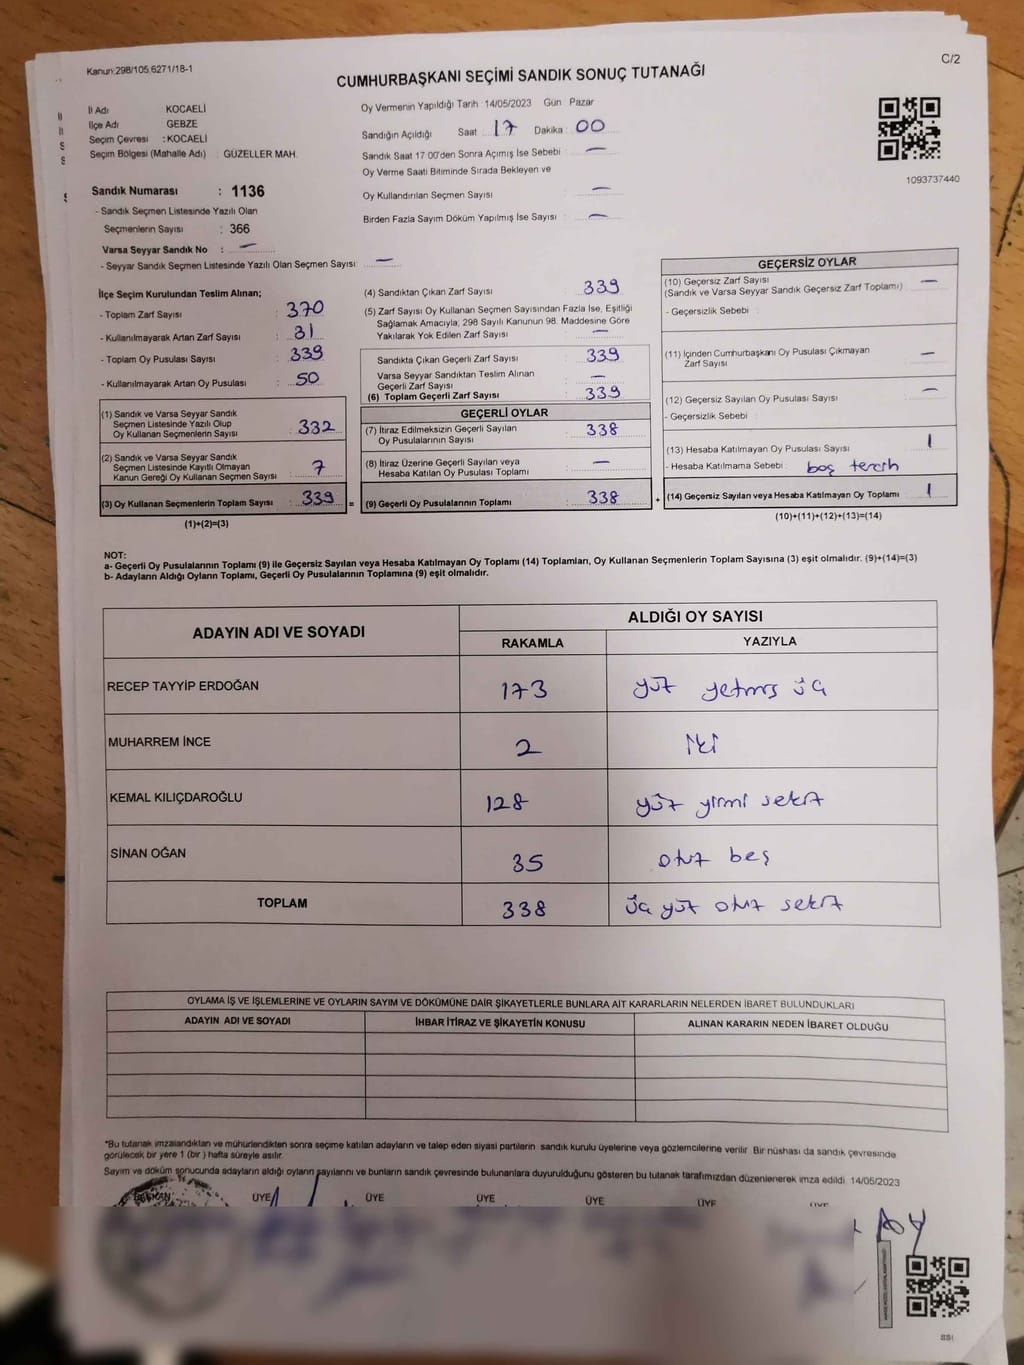 Kanun:298/105,6271/18-1
C/2
CUMHURBAŞKANI SEÇİMİ SANDIK SONUÇ TUTANAĞI
İl Adı KOCAELİ
İlçe Adı GEBZE
Seçim Çevresi : KOCAELİ
Seçim Bölgesi (Mahalle Adı) : GÜZELLER MAH.
Sandık Numarası : 1136
- Sandık Seçmen Listesinde Yazılı Olan
Seçmenlerin Sayısı : 366
Varsa Seyyar Sandık No : —
- Seyyar Sandık Seçmen Listesinde Yazılı Olan Seçmen Sayısı: —
Oy Vermenin Yapıldığı Tarih : 14/05/2023 Gün : Pazar
Sandığın Açıldığı Saat : 17 Dakika : 00
Sandık Saat 17:00'den Sonra Açımış İse Sebebi : —
Oy Verme Saati Bitiminde Sırada Bekleyen ve
Oy Kullandırılan Seçmen Sayısı : —
Birden Fazla Sayım Döküm Yapılmış İse Sayısı : —
1093737440
İlçe Seçim Kurulundan Teslim Alınan;
- Toplam Zarf Sayısı : 370
- Kullanılmayarak Artan Zarf Sayısı : 31
- Toplam Oy Pusulası Sayısı : 339
- Kullanılmayarak Artan Oy Pusulası : 50
(1) Sandık ve Varsa Seyyar Sandık
Seçmen Listesinde Yazılı Olup
Oy Kullanan Seçmenlerin Sayısı : 332
(2) Sandık ve Varsa Seyyar Sandık
Seçmen Listesinde Kayıtlı Olmayan
Kanun Gereği Oy Kullanan Seçmen Sayısı : 7
(3) Oy Kullanan Seçmenlerin Toplam Sayısı : 339 =
(1)+(2)=(3)
(4) Sandıktan Çıkan Zarf Sayısı : 339
(5) Zarf Sayısı Oy Kullanan Seçmen Sayısından Fazla İse, Eşitliği
Sağlamak Amacıyla, 298 Sayılı Kanunun 98. Maddesine Göre
Yakılarak Yok Edilen Zarf Sayısı : —
Sandıkta Çıkan Geçerli Zarf Sayısı : 339
Varsa Seyyar Sandıktan Teslim Alınan
Geçerli Zarf Sayısı : —
(6) Toplam Geçerli Zarf Sayısı : 339
GEÇERLİ OYLAR
(7) İtiraz Edilmeksizin Geçerli Sayılan
Oy Pusulalarının Sayısı : 338
(8) İtiraz Üzerine Geçerli Sayılan veya
Hesaba Katılan Oy Pusulası Toplamı : —
(9) Geçerli Oy Pusulalarının Toplamı : 338 +
GEÇERSİZ OYLAR
(10) Geçersiz Zarf Sayısı : —
(Sandık ve Varsa Seyyar Sandık Geçersiz Zarf Toplamı)
- Geçersizlik Sebebi :
(11) İçinden Cumhurbaşkanı Oy Pusulası Çıkmayan
Zarf Sayısı : —
(12) Geçersiz Sayılan Oy Pusulası Sayısı : —
- Geçersizlik Sebebi :
(13) Hesaba Katılmayan Oy Pusulası Sayısı : 1
- Hesaba Katılmama Sebebi : boş tercih
(14) Geçersiz Sayılan veya Hesaba Katılmayan Oy Toplamı : 1
(10)+(11)+(12)+(13)=(14)
NOT:
a- Geçerli Oy Pusulalarının Toplamı (9) ile Geçersiz Sayılan veya Hesaba Katılmayan Oy Toplamı (14) Toplamları, Oy Kullanan Seçmenlerin Toplam Sayısına (3) eşit olmalıdır. (9)+(14)=(3)
b- Adayların Aldığı Oyların Toplamı, Geçerli Oy Pusulalarının Toplamına (9) eşit olmalıdır.
ADAYIN ADI VE SOYADI
ALDIĞI OY SAYISI
RAKAMLA YAZIYLA
RECEP TAYYİP ERDOĞAN 173 yüz yetmiş üç
MUHARREM İNCE 2 iki
KEMAL KILIÇDAROĞLU 128 yüz yirmi sekiz
SİNAN OĞAN 35 otuz beş
TOPLAM 338 üç yüz otuz sekiz
OYLAMA İŞ VE İŞLEMLERİNE VE OYLARIN SAYIM VE DÖKÜMÜNE DAİR ŞİKAYETLERLE BUNLARA AİT KARARLARIN NELERDEN İBARET BULUNDUKLARI
ADAYIN ADI VE SOYADI İHBAR İTİRAZ VE ŞİKAYETİN KONUSU ALINAN KARARIN NEDEN İBARET OLDUĞU
*Bu tutanak imzalandıktan ve mühürlendikten sonra seçime katılan adayların ve talep eden siyasi partilerin sandık kurulu üyelerine veya gözlemcilerine verilir. Bir nüshası da sandık çevresinde
görülecek bir yere 1 (bir) hafta süreyle asılır.
Sayım ve döküm sonucunda adayların aldığı oyların sayılarını ve bunların sandık çevresinde bulunanlara duyurulduğunu gösteren bu tutanak tarafımızdan düzenlenerek imza edildi. 14/05/2023
BAŞKAN ÜYE ÜYE ÜYE ÜYE ÜYE ÜYE